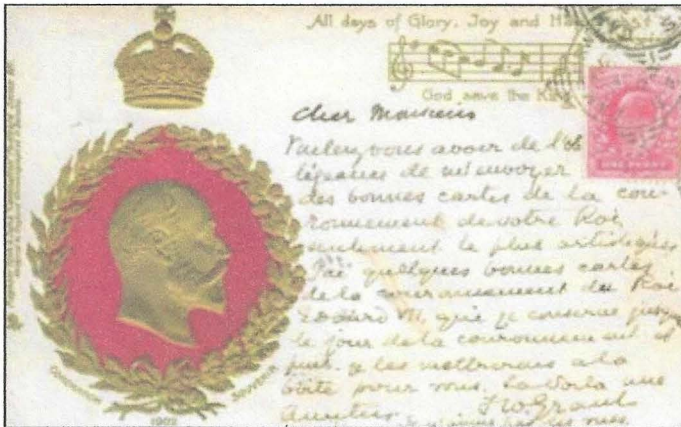 All days of Glory, Joy and
God save the King
ONE PENNY
Cher Monsieur
vous avoir de l'ob
ligeance de m'envoyer
des bonnes cartes de la cou-
ronnement de votre Roi
seulement le plus artistiques
J'ai quelques bonnes cartes
de la couronnement du Roi
Edouard VII, que je conserve
le jour de la couronnement et
puis je les mettrerais a la
boite pour vous. La Voila une
J W Grant
Coronation Souvenir
1902